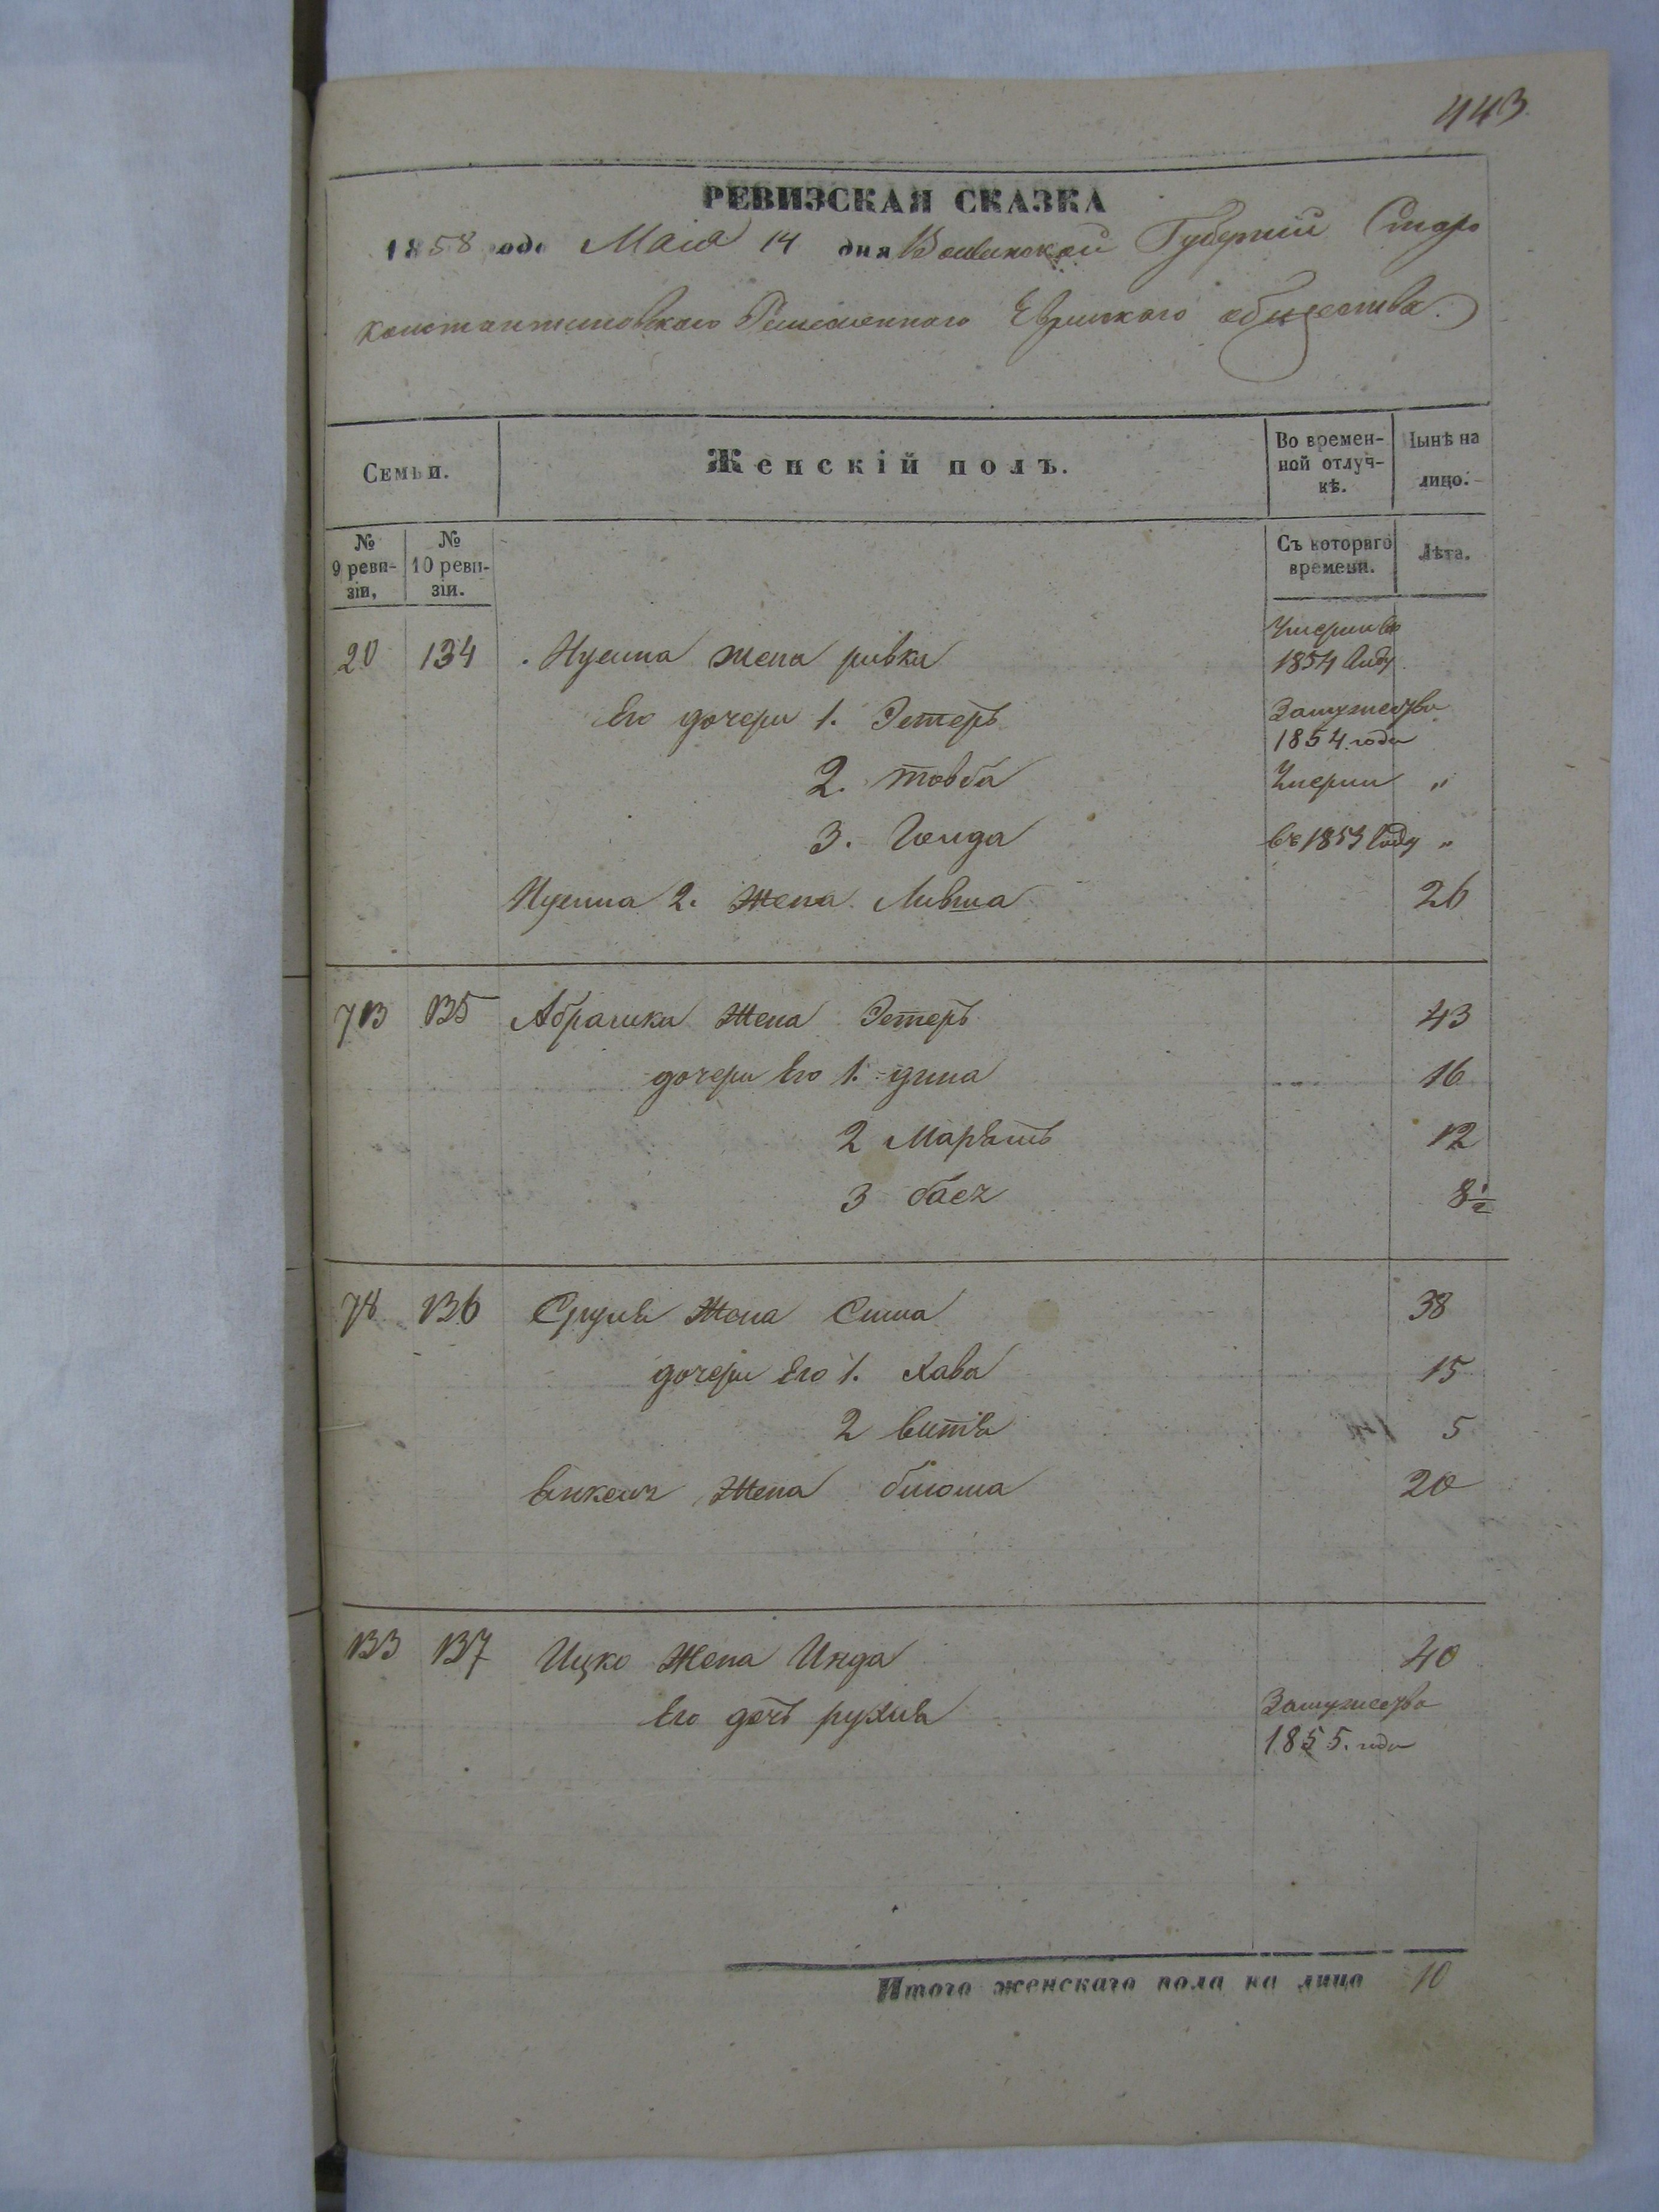 443.
РЕВИЗСКАЯ СКАЗКА
1858 года Маія 14 дня Волынской Губерніи Старо
константиновскаго Ремесленнаго Еврейскаго общества.
Семьи.
Женскій полъ.
Во времен-
ной отлуч-
кѣ.
Нынѣ на
лицо.
№
9 реви-
зіи,
№
10 реви-
зіи.
Съ котораго
времени.
Лѣта.
20 134 жена ривка Умерла въ
1854 Году
Его дочери 1. Эстеръ Замужество
1854 года
2. товба Умерли "
3. Гольда въ 1853 Году "
2. Жена Ливша 26
713 135 Абрашки Жена Эстеръ 43
дочери Его 1. дина 16
2 Маръятъ 12
3  8 1/2
78 136 Сруля Жена Сима 38
дочери Его 1. Хава 15
2 5
Жена 20
133 137 Ицко Жена Инда 40
Его дочъ рухля Замужество
1855. года
Итого женскаго пола на лицо 10